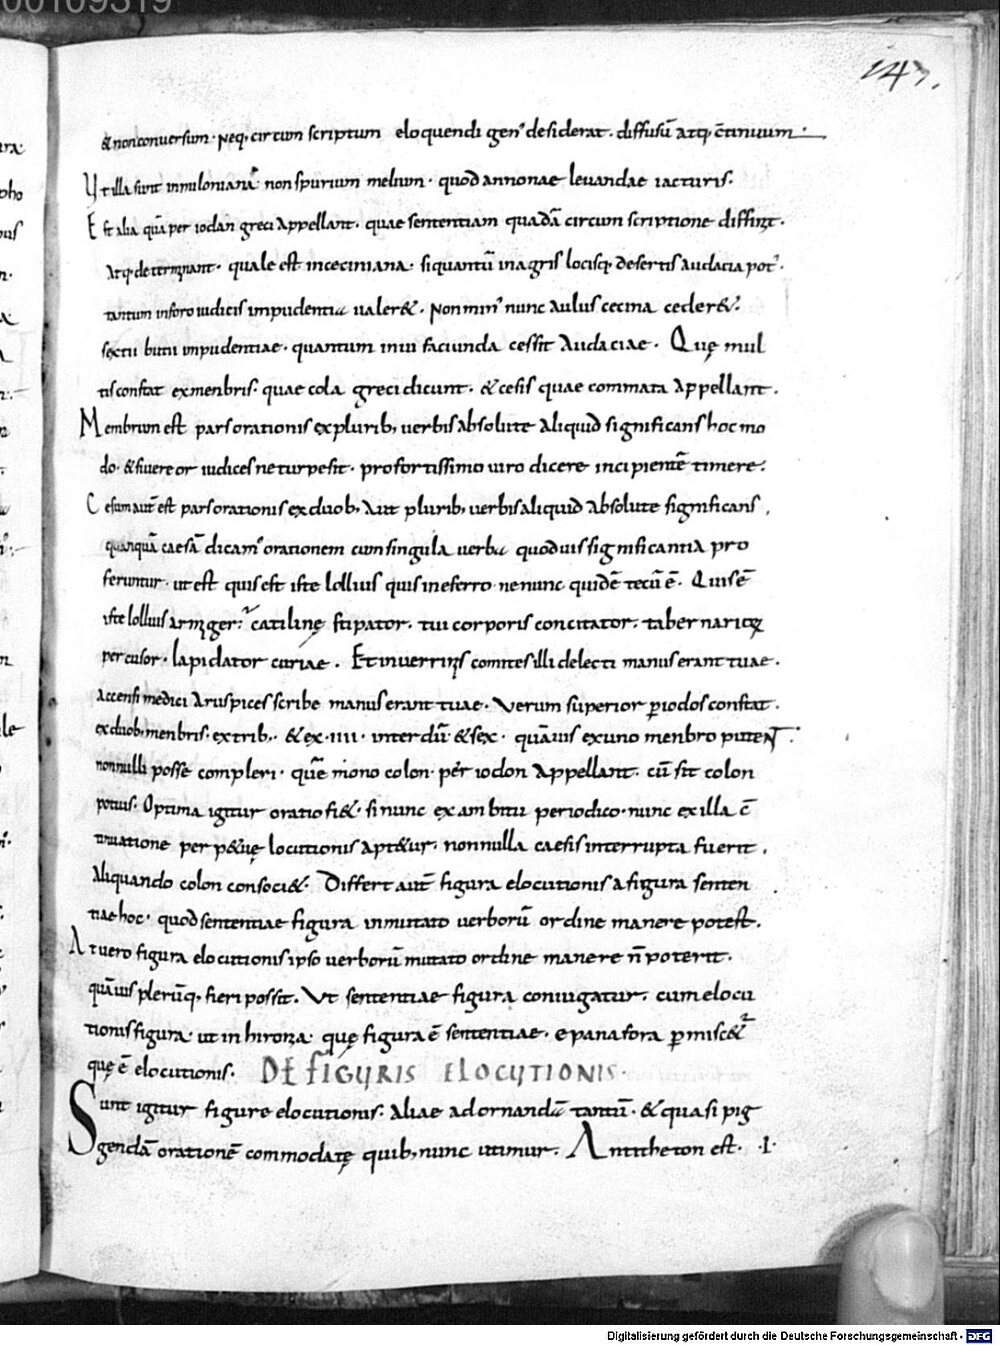 00109319
147.
& non conuersum · Neq; circum scriptum eloquendi gen' desiderat. diffusũ atq; c̃tinuum ·
Vt illa sunt in miloniana non spurium melium · quod annonae leuandae iacturis.
Est alia quã per iodan greci appellant. quae sententiam quadã circum scriptione diffinit.
Atq; determinant. quale est in ceciniana. si quantũ in agris locisq; desertis audacia pot'.
tantum in foro iudiciis impudentia ualer&. Non min' nunc aulus cecina ceder&.
sextii butii impudentiae. quantum in iui faciunda cessit audaciae. Quę mul
tis constat ex menbris. quae cola greci dicunt. & cesis quae commata appellant.
Membrum est pars orationis ex plurib; uerbis absolute aliquid significans hoc mo
do. & si uereor iudices ne turpe sit. pro fortissimo uiro dicere incipientẽ timere.
Cesum aut̃ est pars orationis ex duob; aut plurib; uerbis aliquid absolute significans,
quanquã caesã dicam' orationem cum singula uerba quod uis significantia pro
feruntur. ut est quis est iste lollius quis ine ferro. ne nunc quidẽ tecũ ẽ. Quis ẽ
iste lollius armiger. catilinę stipator. tui corporis concitator. tabernarioꝝ
percusor. lapidator curiae. Et in uerrinis comites illi delecti manus erant tuae.
Accensi medici aruspices scribe manus erant tuae. Verum superior ꝑiodos constat.
ex duob; menbris. ex trib;. & ex · IIII · interdũ & sex. quãuis ex uno menbro putent.
nonnulli posse compleri. quẽ mono colon. per iodon appellant. cũ sit colon
potius. Optima igitur oratio fi&. si nunc ex ambitu periodico. nunc ex illa c̃
tinuatione per p&uę locutionis apt&ur. nonnulla caesis interrupta fuerit.
Aliquando colon consoci&. Differt aut̃ figura elocutionis a figura senten
tiae hoc. quod sententiae figura inmutato uerborũ ordine manere potest.
At uero figura elocutionis ipso uerborũ mutato ordine manere ñ poterit.
quãuis plerũq; fieri possit. Vt sententiae figura coniugatur. cum elocu
tionis figura. ut in hironia. quę figura ẽ sententiae. epanafora ꝑ misc&
quę ẽ elocutionis. DE FIGURIS ELOCUTIONIS.
Sunt igitur figure elocutionis. aliae ad ornandã tantũ. & quasi pig
gendã orationẽ commodatę quib; nunc utimur. Antitheton est. · I ·
Digitalisierung gefördert durch die Deutsche Forschungsgemeinschaft - DFG